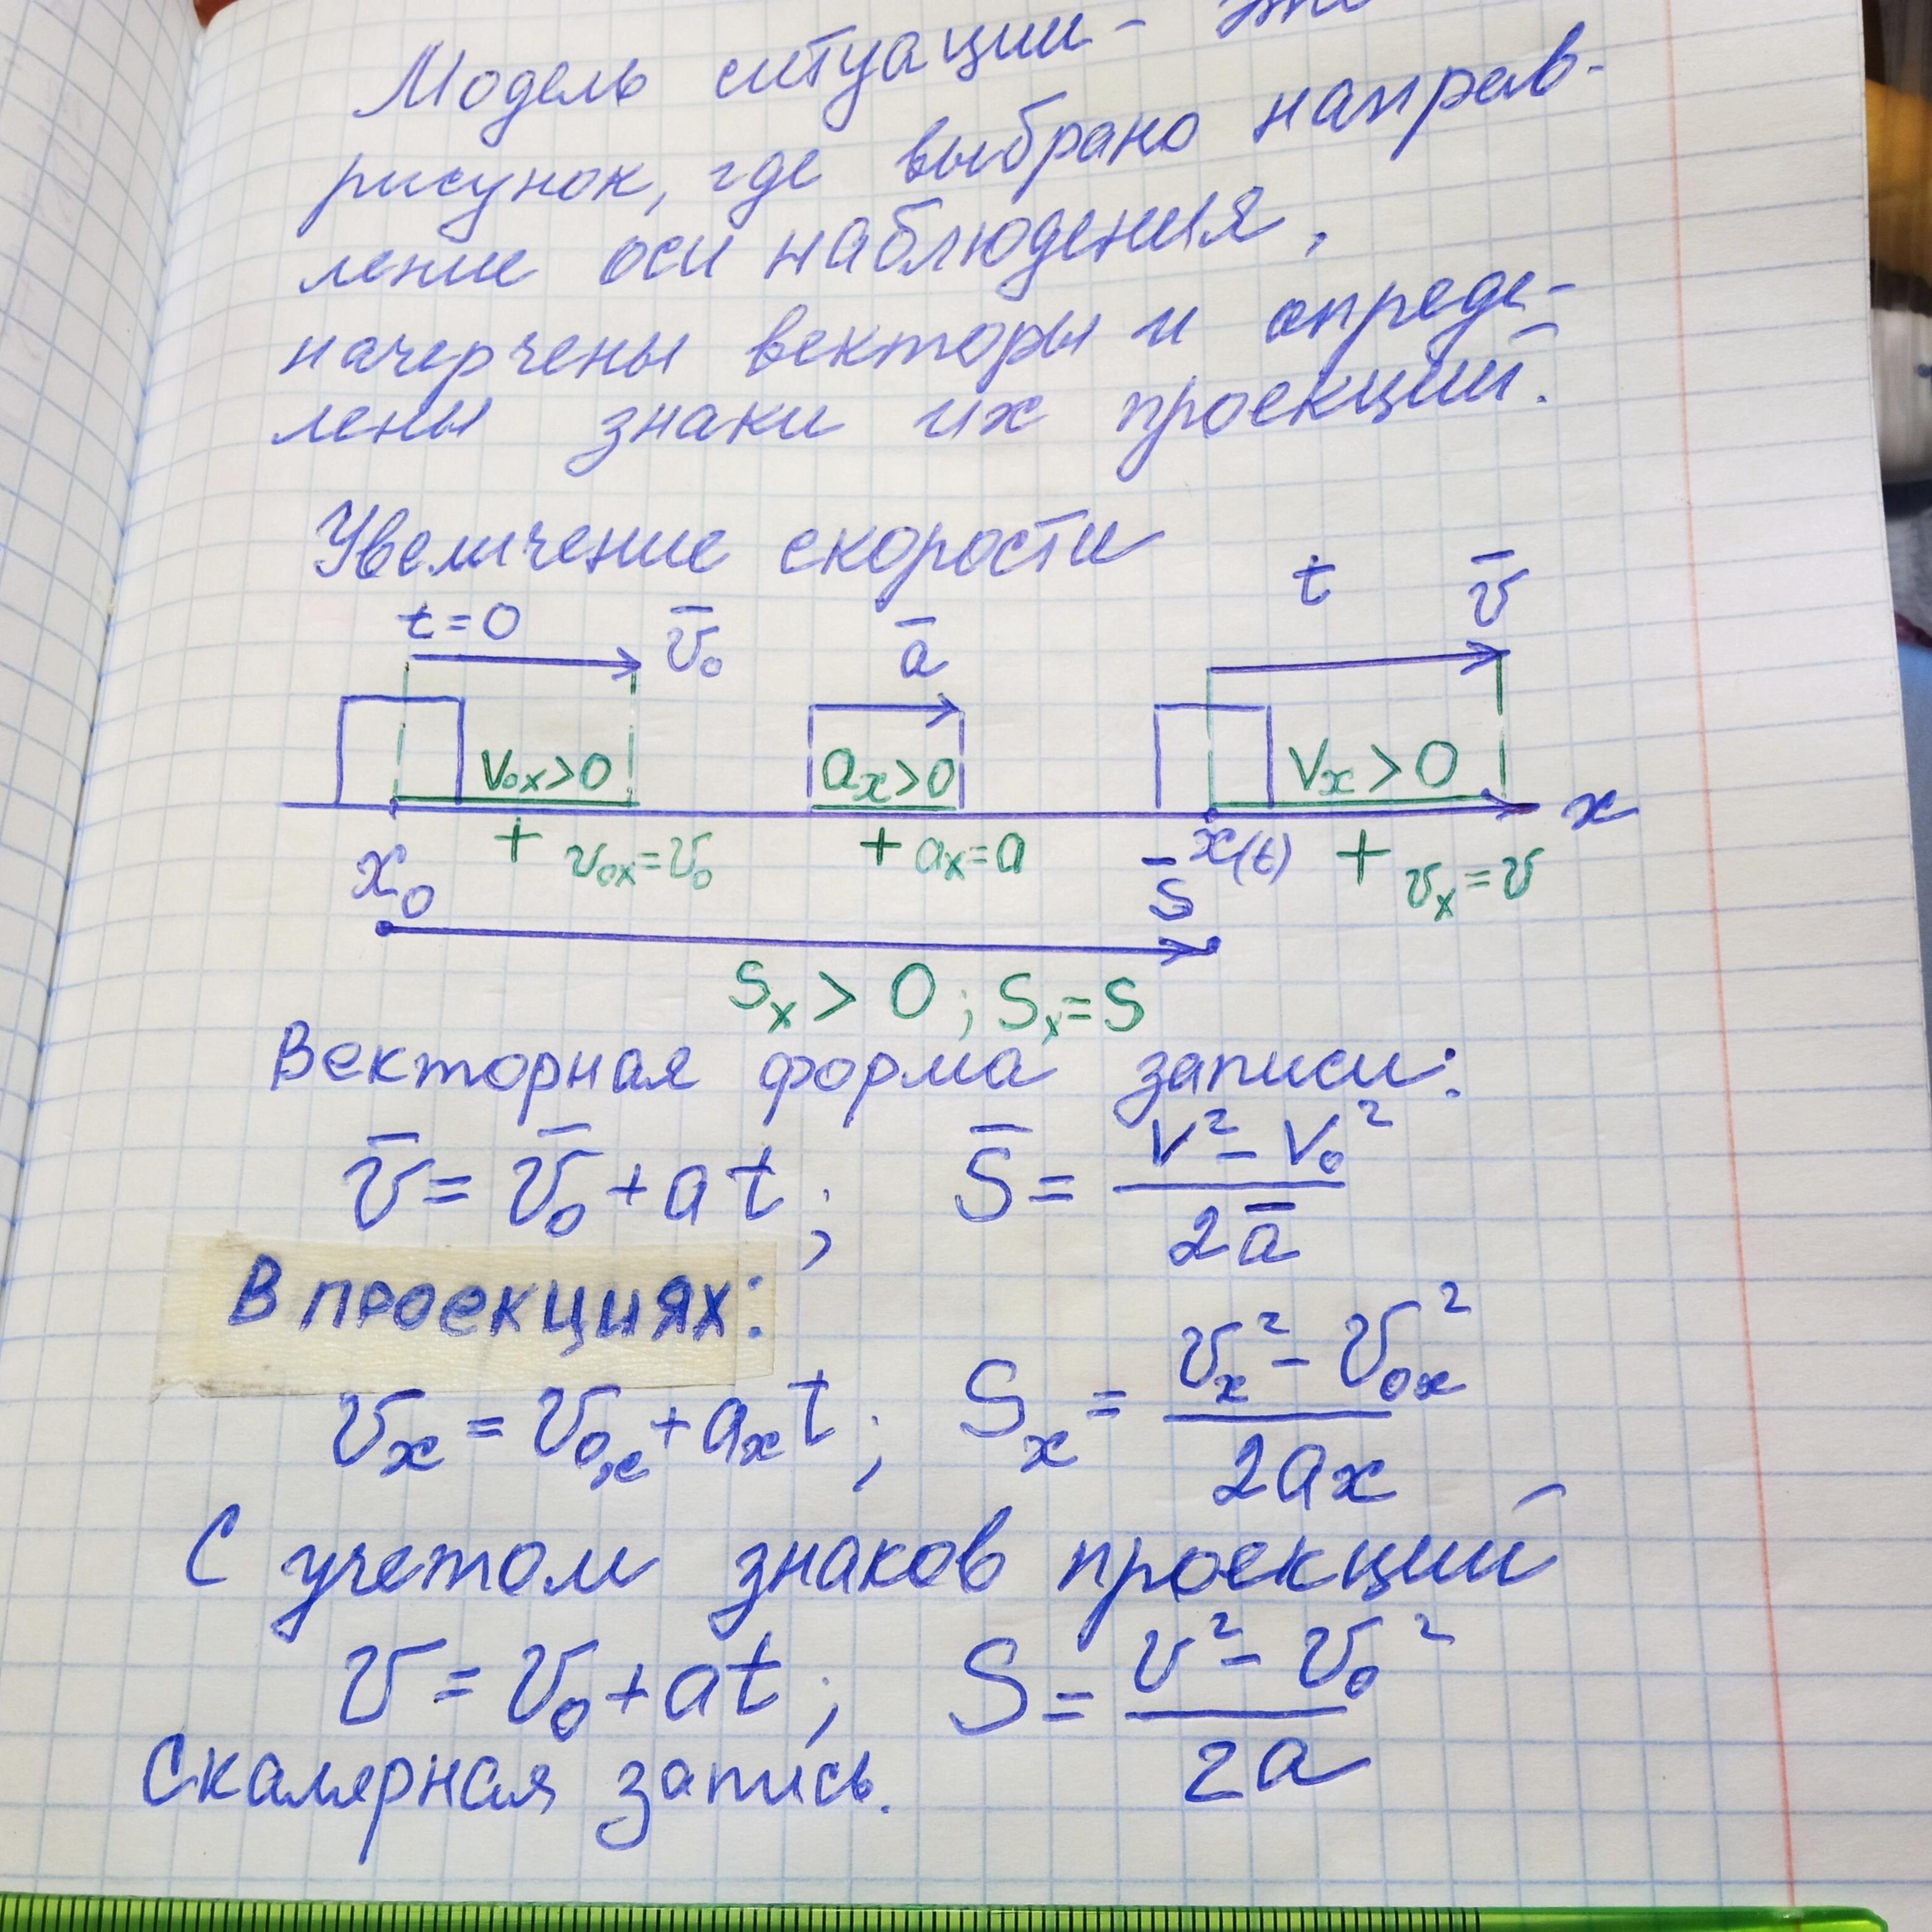 Модель ситуации - это
рисунок, где выбрано направ-
ление оси наблюдения,
начерчены векторы и опреде-
лены знаки их проекций.
Увеличение скорости
t=0 v̄₀ ā t v̄
v₀ₓ>0 aₓ>0 vₓ>0
x
x₀ + v₀ₓ=v₀ + aₓ=a x(t) + vₓ=v
S̄
Sₓ > 0 ; Sₓ=S
Векторная форма записи:
v̄ = v̄₀ + at ; S̄ = (v² - v₀²) / 2ā
В проекциях:
vₓ = v₀ₓ + aₓt ; Sₓ = (vₓ² - v₀ₓ²) / 2aₓ
С учетом знаков проекций
v = v₀ + at ; S = (v² - v₀²) / 2a
Скалярная запись.